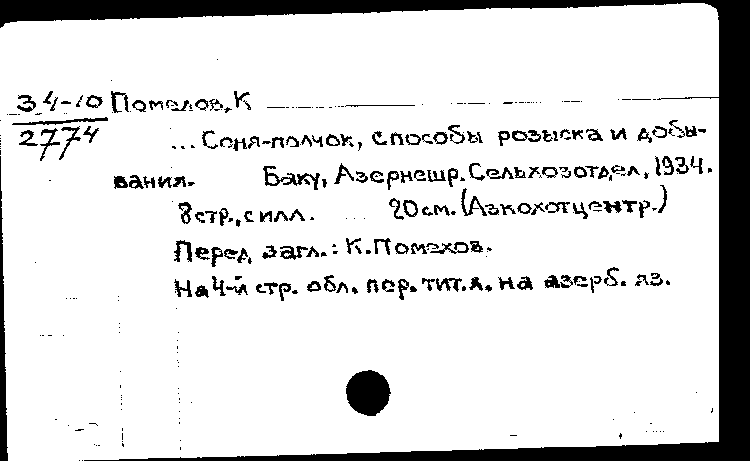 34-10 Помелов, К
2774
... Соня-полчок, способы розыска и добы-
вания. Баку, Азернешр. Сельхозотдел, 1934.
8 стр., с илл. 20 см. (Азкохотцентр.)
Перед загл.: К. Помехов.
На 4-й стр. обл. пер. тит. л. на азерб. яз.